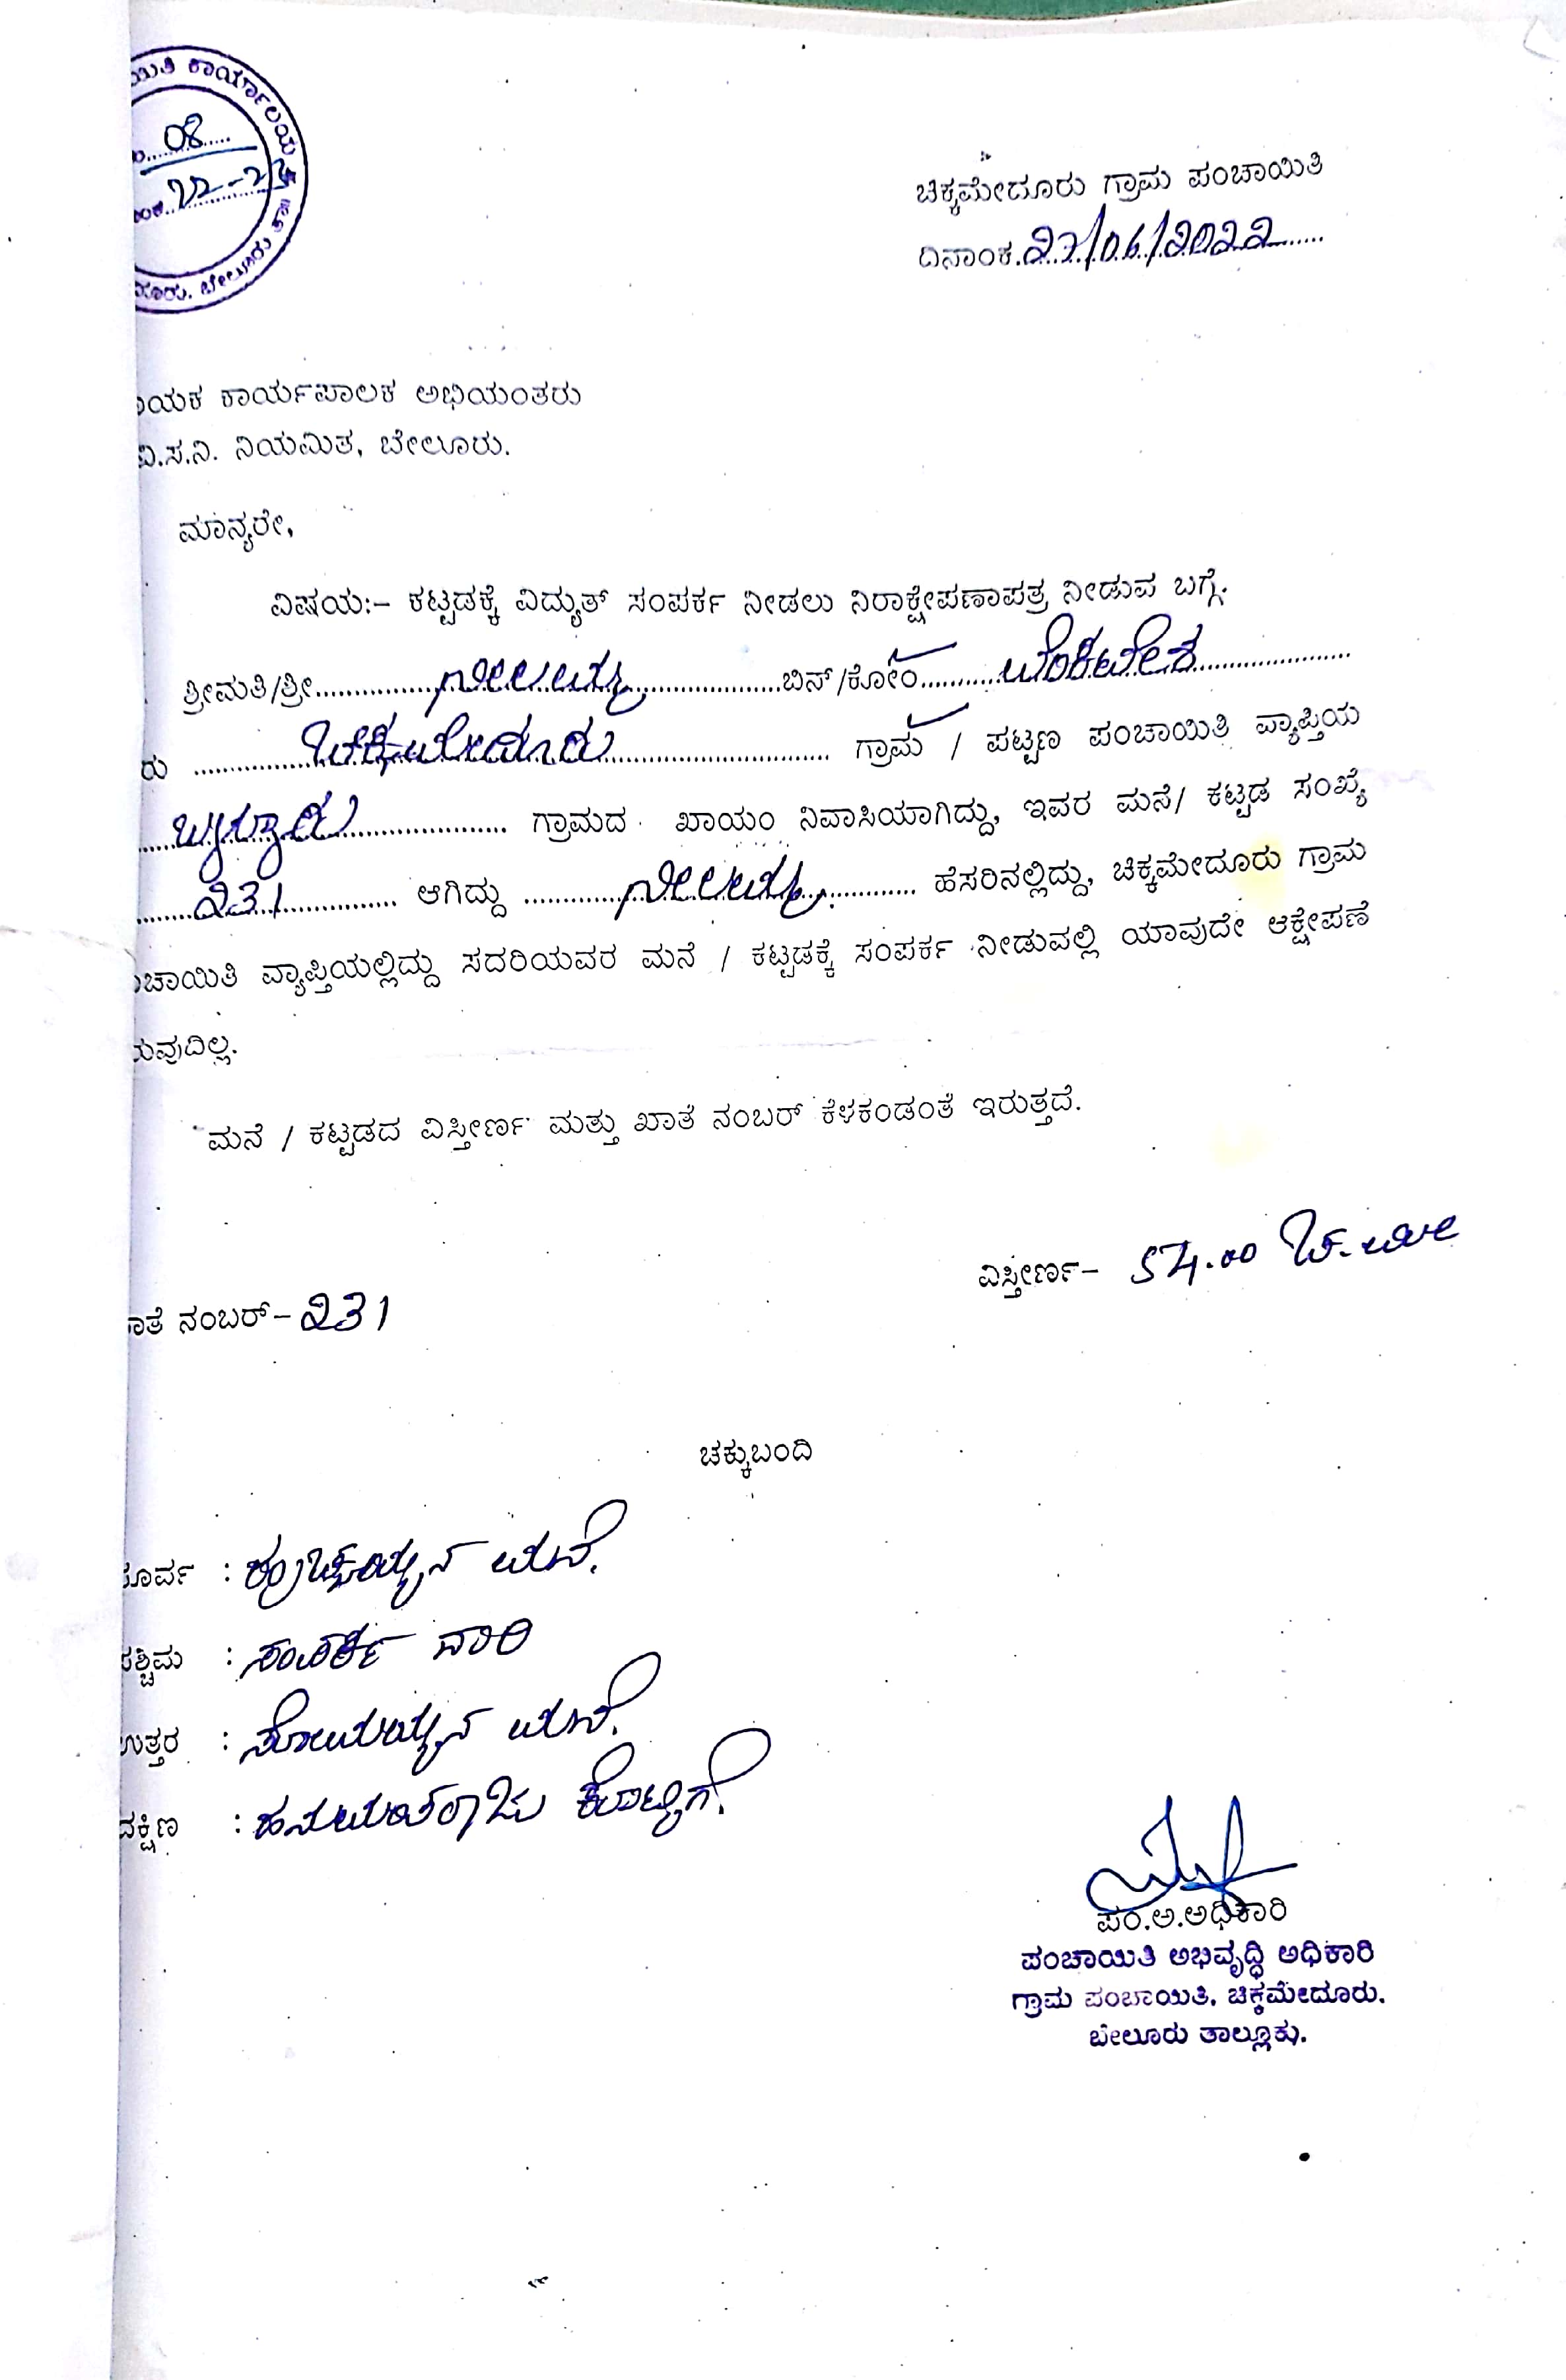 ಕಾರ್ಯಾಲಯ
08
22-23
ಚಿಕ್ಕಮೇದೂರು ಗ್ರಾಮ ಪಂಚಾಯಿತಿ
ದಿನಾಂಕ.27/06/2022
ಯಕ ಕಾರ್ಯಪಾಲಕ ಅಭಿಯಂತರು
ವಿ.ಸ.ನಿ. ನಿಯಮಿತ, ಬೇಲೂರು.
ಮಾನ್ಯರೇ,
ವಿಷಯ:– ಕಟ್ಟಡಕ್ಕೆ ವಿದ್ಯುತ್ ಸಂಪರ್ಕ ನೀಡಲು ನಿರಾಕ್ಷೇಪಣಾಪತ್ರ ನೀಡುವ ಬಗ್ಗೆ.
ಶ್ರೀಮತಿ/ಶ್ರೀ ನೀಲಮ್ಮ ಬಿನ್/ಕೋಂ ವೆಂಕಟೇಶ
ರು ಚಿಕ್ಕಮೇದೂರು ಗ್ರಾಮ / ಪಟ್ಟಣ ಪಂಚಾಯಿತಿ ವ್ಯಾಪ್ತಿಯ
ಗ್ರಾಮದ ಖಾಯಂ ನಿವಾಸಿಯಾಗಿದ್ದು, ಇವರ ಮನೆ/ ಕಟ್ಟಡ ಸಂಖ್ಯೆ
231 ಆಗಿದ್ದು ನೀಲಮ್ಮ ಹೆಸರಿನಲ್ಲಿದ್ದು, ಚಿಕ್ಕಮೇದೂರು ಗ್ರಾಮ
ಚಾಯಿತಿ ವ್ಯಾಪ್ತಿಯಲ್ಲಿದ್ದು ಸದರಿಯವರ ಮನೆ / ಕಟ್ಟಡಕ್ಕೆ ಸಂಪರ್ಕ ನೀಡುವಲ್ಲಿ ಯಾವುದೇ ಆಕ್ಷೇಪಣೆ
ರುವುದಿಲ್ಲ.
ಮನೆ / ಕಟ್ಟಡದ ವಿಸ್ತೀರ್ಣ ಮತ್ತು ಖಾತೆ ನಂಬರ್ ಕೆಳಕಂಡಂತೆ ಇರುತ್ತದೆ.
ವಿಸ್ತೀರ್ಣ– 54.00 ಚ.ಮೀ
ಾತೆ ನಂಬರ್– 231
ಚಕ್ಕುಬಂದಿ
ೂರ್ವ : ಮನೆ.
ಶ್ಚಿಮ : ಸಂಪರ್ಕ ದಾರಿ
ಉತ್ತರ : ಸೋಮಯ್ಯನ ಮನೆ.
ದಕ್ಷಿಣ : ಹನುಮಂತರಾಜು ಕೊಟ್ಟಿಗೆ.
ಪಂ.ಅ.ಅಧಿಕಾರಿ
ಪಂಚಾಯಿತಿ ಅಭಿವೃದ್ಧಿ ಅಧಿಕಾರಿ
ಗ್ರಾಮ ಪಂಚಾಯಿತಿ. ಚಿಕ್ಕಮೇದೂರು.
ಬೇಲೂರು ತಾಲ್ಲೂಕು.